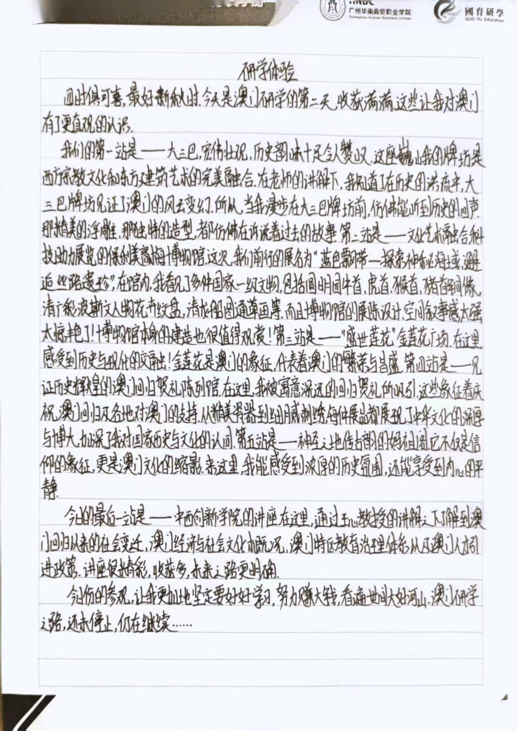 HNBC
广州华南商贸职业学院
Guangzhou Huanan Business College
國育研学
GUO YU Education
研学体验
四时俱可喜,最好新秋时.今天是澳门研学的第二天,收获满满,这些让我对澳门
有了更直观的认识.
我们的第一站是——大三巴,宏伟壮观,历史韵味十足令人赞叹,这座巍峨的牌坊是
西方宗教文化和东方建筑艺术的完美融合.在老师的讲解下,我知道了在历史的洪流中,大
三巴牌坊见证了澳门的风云变幻.所以,当我漫步在大三巴牌坊前,仿佛能听到历史的回声.
那精美的浮雕,那独特的造型,都仿佛在诉说着过去的故事.第二站是——文化艺术融合,科
技助力展览的保利美高梅博物馆.这次,我们前行的展名为"蓝色飘带—探索神秘海域,邂
逅丝路遗珍".在馆内,我看见了多种国家一级文物,包括圆明园牛首,虎首,猴首,猪首铜像,
清
而且博物馆的展陈设计,空间叙事感太强
大幅把了!博物馆本身的建造也很值得观赏!第三站是——"盛世莲花"金莲花广场,在这里,
感受到历史与现代的交融!金莲花是澳门的象征,代表着澳门的繁荣与昌盛.第四站是——见
证历史辉煌的澳门回归贺礼陈列馆,在这里,我被寓意深远的回归贺礼所吸引,这些象征着庆
祝澳门回归及各地对澳门的支持,从精美瓷器到
每件展品都展现了中华文化的深厚
与博大,加深了我对国家历史与文化的认同.第五站是——
的妈祖阁,它不仅是信
仰的象征,更是澳门文化的缩影.来这里,我能感受到浓厚的历史氛围,还能享受到内心的平
静.
今日的最后一站是——中西创新学院的讲座.在这里,通过
教授的讲解之下了解到澳
门回归以来的社会变迁,澳门经济与社会文化的概况,澳门特区教育治理体系以及澳门人才引
进政策.讲座很精彩,收获多,未来之路更明确.
今日份的参观,让我更加地坚定要好好学习,努力赚大钱,看遍世间大好河山,澳门研学
之路,还未停止,仍在继续……